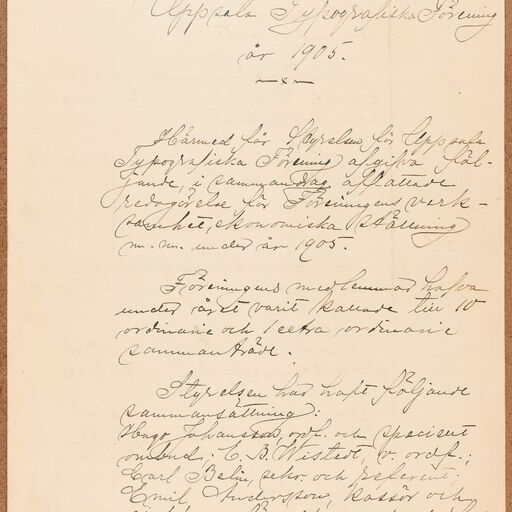 Uppsala Typografiska Förening
år 1905.
Härmed får Styrelsen för Uppsala
Typografiska Förening afgifva föl-
jande, i sammandrag affattade
redogörelse för Föreningens verk-
samhet, ekonomiska ställning
m. m. under år 1905.
Föreningens medlemmar hafva
under året varit kallade till 10
ordinarie och 1 extra ordinarie
sammanträde.
Styrelsen har haft följande
sammansättning:
Hugo Johansson, ordf. och specient
ombud; C. B. Wistedt, v. ordf.;
Carl Belin, sekr. och referent;
Emil Andersson, kassör och